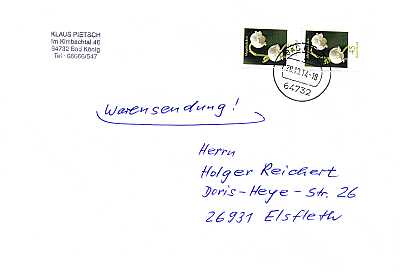 KLAUS PIETSCH
Im Kimbachtal 46
64732 Bad König
Tel.: 06066/547
45
64732
Warensendung!
Herrn
Holger Reichert
Doris-Heye-Str. 26
26931 Elsfleth